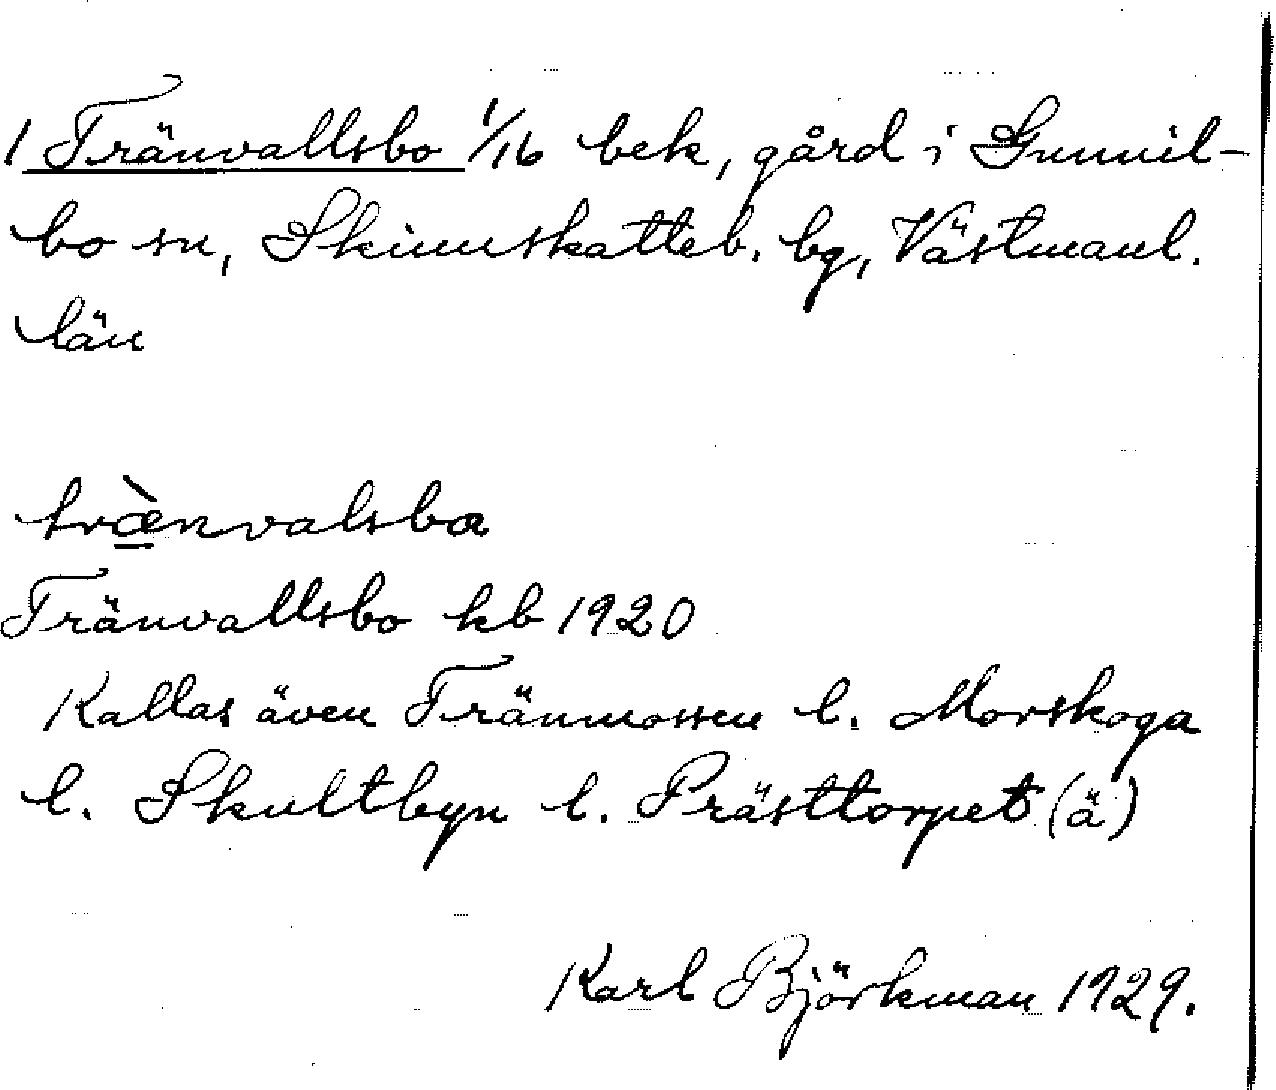 1 Tränvallsbo 1/16 bek, gård i Gunnil-
bo sn, Skinnskatteb. bg, Västmanl.
län
træ̀nvalsbω
Tränvallsbo kb 1920
Kallas även Tränmossen l. Morskoga
l. Skultbyn l. Prästtorpet (ä)
Karl Björkman 1929.